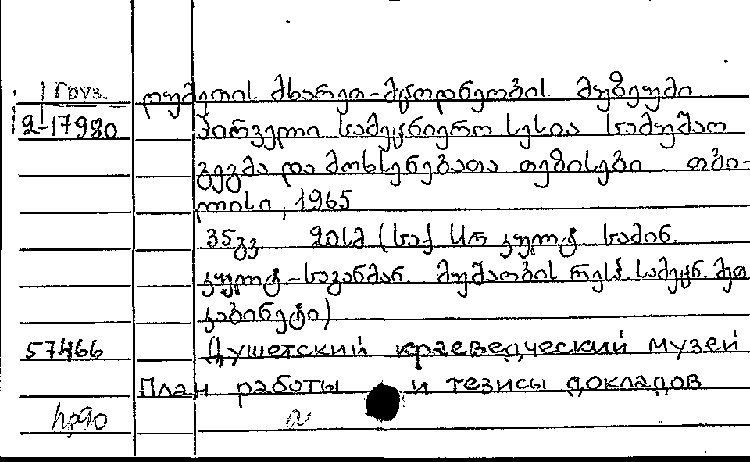 Груз. დუშეთის მხარეთ-მცოდნეობის მუზეუმი
2-17920 პირველი სამეცნიერო სესია სამუშაო
გეგმა და მოხსენებათა თეზისები თბი-
ლისი, 1965
35გვ 20სმ (საქ სსრ კულტ. სამინ.
კულტ-საგანმან. მუშაობის რესპ. სამეცნ. მეთ
კაბინეტი)
57466 Душетский краеведческий музей
План работы и тезисы докладов